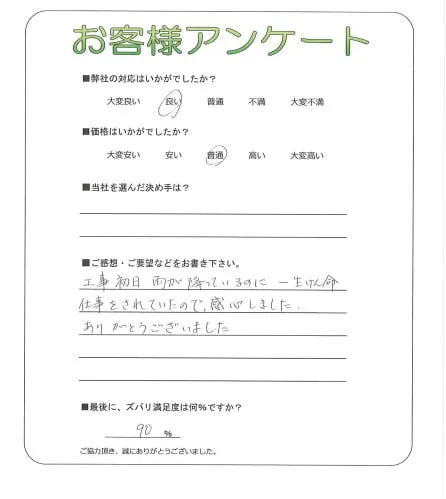 お客様アンケート
■弊社の対応はいかがでしたか?
大変良い 良い 普通 不満 大変不満
■価格はいかがでしたか?
大変安い 安い 普通 高い 大変高い
■当社を選んだ決め手は?
■ご感想・ご要望などをお書き下さい。
工事初日 雨が降っているのに 一生けん命
仕事をされていたので、感心しました.
ありがとうございました
■最後に、ズバリ満足度は何%ですか?
90 %
ご協力頂き、誠にありがとうございました。